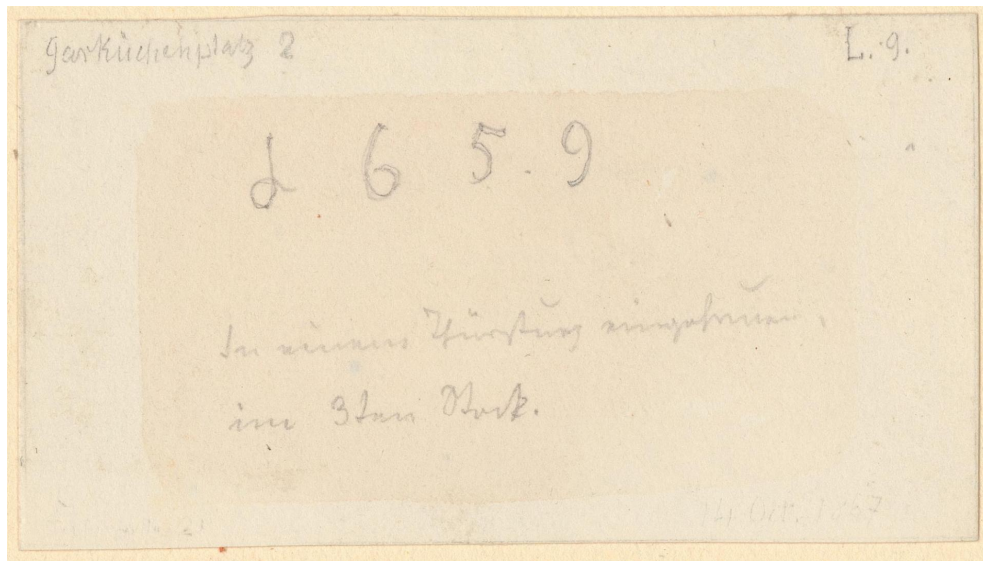 Garküchenplatz 2
L. 9.
1 6 5 . 9
In einem Thürsturz eingehauen,
im 3ten Stock.
14 Oct. 1867